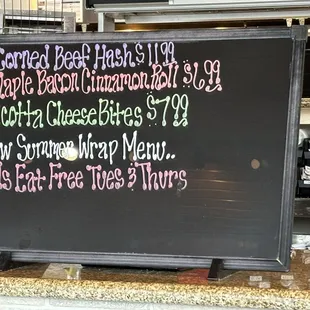 Corned Beef Hash $11.99
Maple Bacon Cinnamon Roll $6.99
cotta Cheese Bites $7.99
w Summer Wrap Menu..
ds Eat Free Tues & Thurs